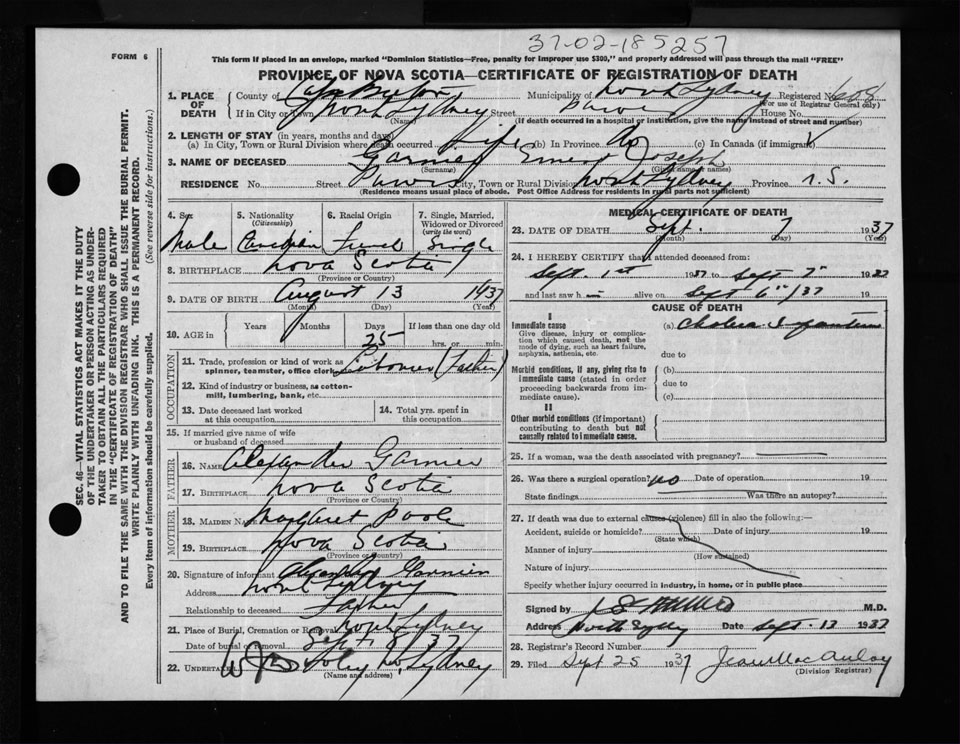 37-02-185257
FORM 6
This form if placed in an envelope, marked "Dominion Statistics—Free, penalty for improper use $300," and properly addressed will pass through the mail "FREE"
PROVINCE OF NOVA SCOTIA—CERTIFICATE OF REGISTRATION OF DEATH
1. PLACE OF DEATH
County of Cape Breton Municipality of North Sydney Registered No. 608
(For use of Registrar General only)
If in City or Town North Sydney Street House No.
(If death occurred in a hospital or institution, give the name instead of street and number)
2. LENGTH OF STAY (in years, months and days)
(a) In City, Town or Rural Division where death occurred life (b) In Province do (c) In Canada (if immigrant)
3. NAME OF DECEASED Garnier Ernest Joseph
(Surname) (Given name or names)
RESIDENCE No. Street City, Town or Rural Division North Sydney Province N.S.
(Residence means usual place of abode. Post Office Address for residents in rural parts not sufficient)
4. Sex
Male
5. Nationality
(Citizenship)
Canadian
6. Racial Origin
French
7. Single, Married, Widowed or Divorced
(write the word)
Single
8. BIRTHPLACE Nova Scotia
(Province or Country)
9. DATE OF BIRTH August 13 1937
(Month) (Day) (Year)
10. AGE in Years Months Days If less than one day old
25 hrs. or min.
OCCUPATION
11. Trade, profession or kind of work as spinner, teamster, office clerk, Labourer (Father)
12. Kind of industry or business, as cotton-mill, lumbering, bank, etc.
13. Date deceased last worked at this occupation
14. Total yrs. spent in this occupation
15. If married give name of wife or husband of deceased
FATHER
16. NAME Alexander Garnier
17. BIRTHPLACE Nova Scotia
(Province or Country)
MOTHER
18. MAIDEN NAME Margaret Poole
19. BIRTHPLACE Nova Scotia
(Province or Country)
20. Signature of informant Alexander Garnier
Address North Sydney
Relationship to deceased Father
21. Place of Burial, Cremation or Removal North Sydney
Date of burial or removal Sept 8 1937
22. UNDERTAKER No. Sydney
(Name and address)
MEDICAL CERTIFICATE OF DEATH
23. DATE OF DEATH Sept. 7 1937
(Month) (Day) (Year)
24. I HEREBY CERTIFY that I attended deceased from:
Sept. 1st 1937 to Sept 7th 1937
and last saw him alive on Sept 6th /37
CAUSE OF DEATH
I
Immediate cause (a) Cholera Infantum
Give disease, injury or complication which caused death, not the mode of dying, such as heart failure, asphyxia, asthenia, etc.
due to
Morbid conditions, if any, giving rise to immediate cause (stated in order proceeding backwards from immediate cause).
(b)
due to
(c)
II
Other morbid conditions (if important) contributing to death but not causally related to immediate cause.
25. If a woman, was the death associated with pregnancy?
26. Was there a surgical operation? no Date of operation 19
State findings Was there an autopsy?
27. If death was due to external causes (violence) fill in also the following:—
Accident, suicide or homicide? Date of injury 19
(State which)
Manner of injury
(How sustained)
Nature of injury
Specify whether injury occurred in industry, in home, or in public place
Signed by M.D.
Address North Sydney Date Sept. 13 1937
28. Registrar's Record Number
29. Filed Sept 25 1937 Jean MacAulay
(Division Registrar)
SEC. 46—VITAL STATISTICS ACT MAKES IT THE DUTY
OF THE UNDERTAKER OR PERSON ACTING AS UNDER-
TAKER TO OBTAIN ALL THE PARTICULARS REQUIRED
IN THE "CERTIFICATE OF REGISTRATION OF DEATH"
AND TO FILE THE SAME WITH THE DIVISION REGISTRAR WHO SHALL ISSUE THE BURIAL PERMIT.
WRITE PLAINLY WITH UNFADING INK. THIS IS A PERMANENT RECORD.
Every item of information should be carefully supplied. (See reverse side for instructions.)